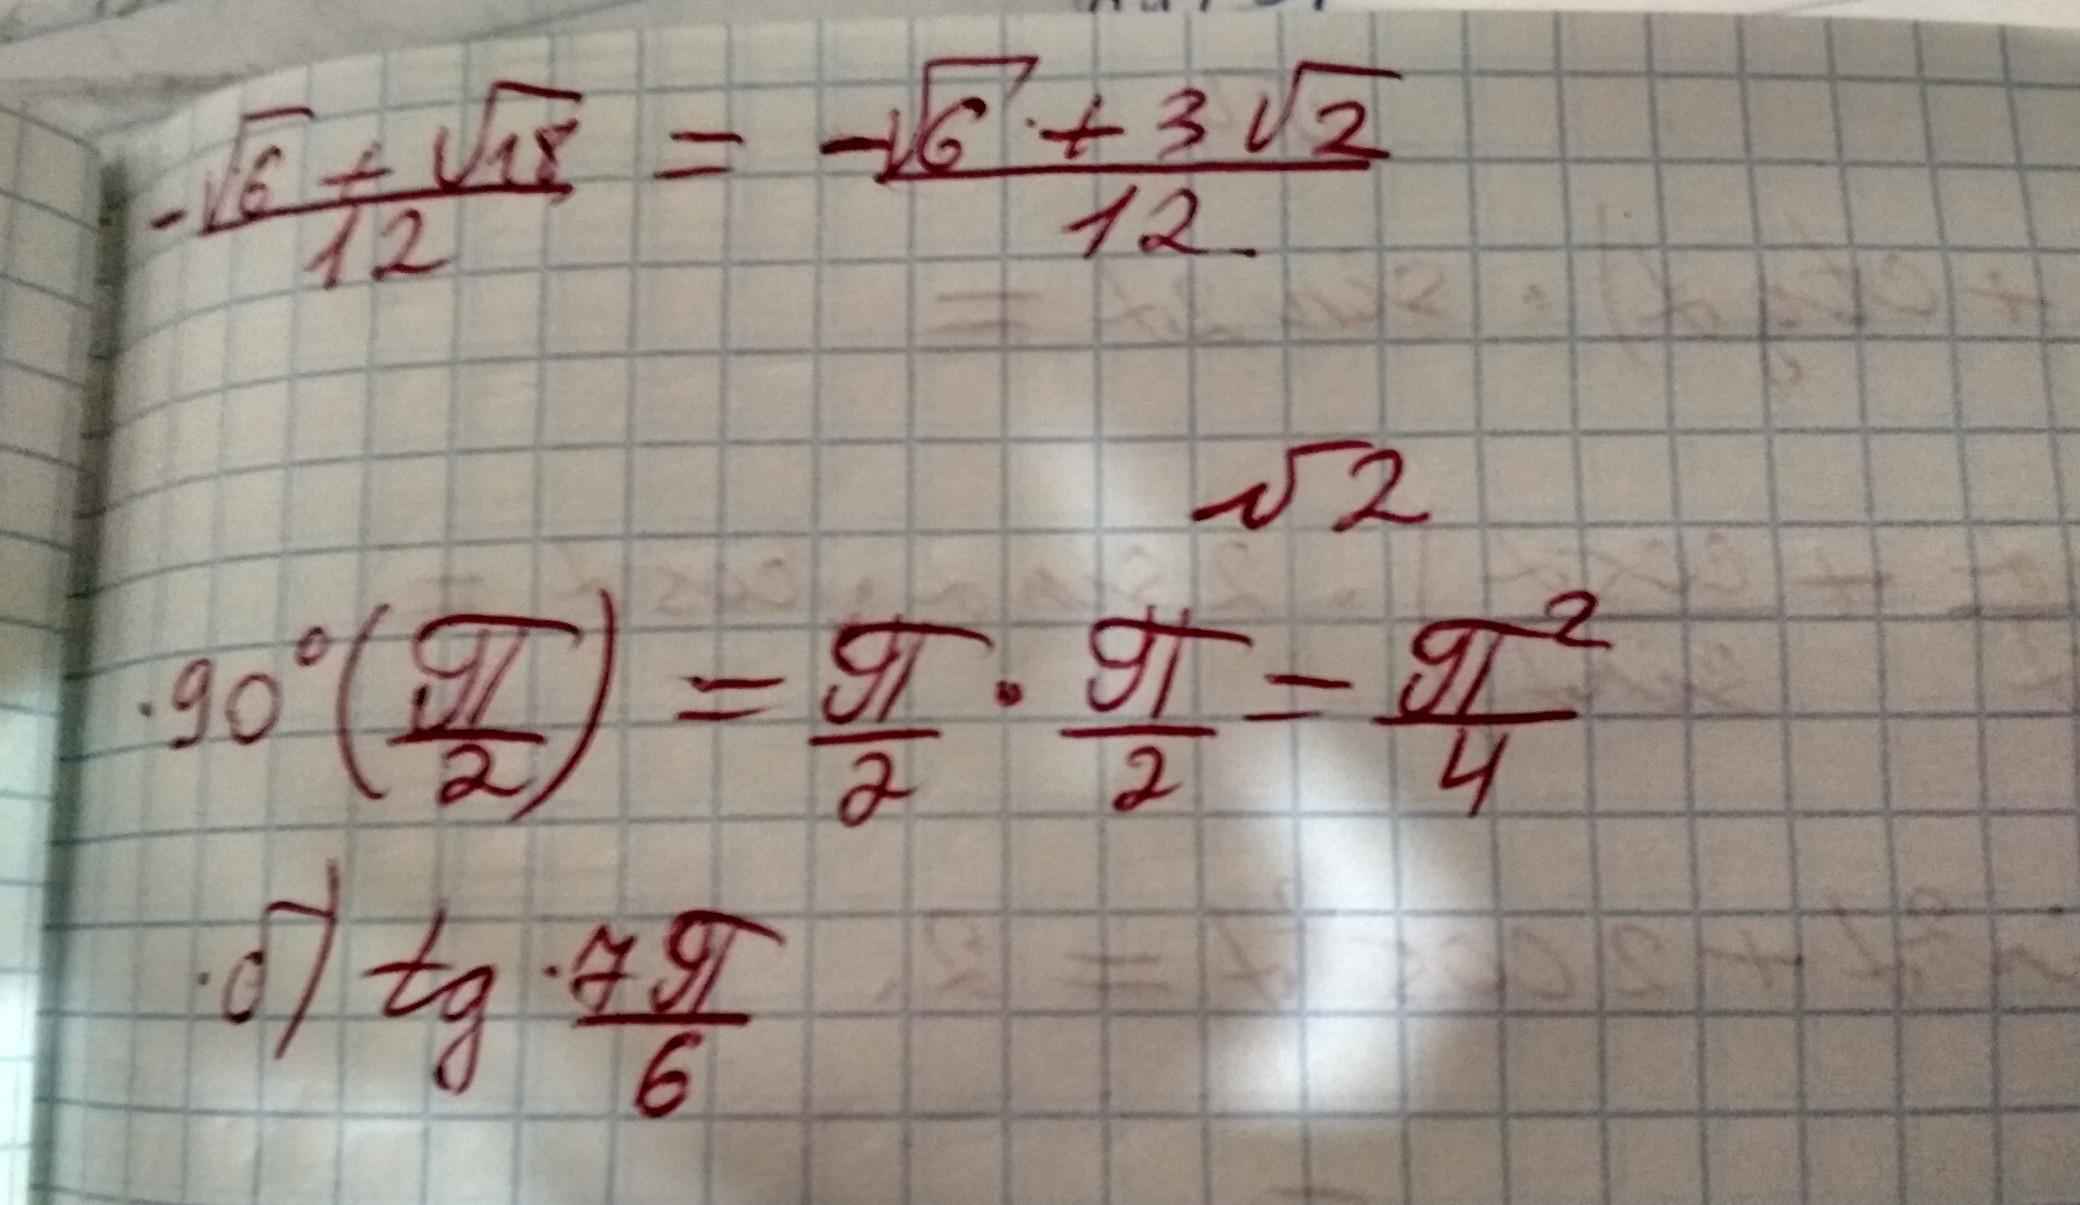 -√6 + √18 / 12 = -√6 + 3√2 / 12.
√2
·90° (π/2) = π/2 · π/2 = π²/4
·б) tg · 7π/6